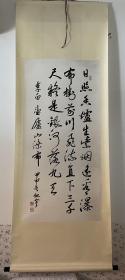 日照香炉生紫烟遥看瀑
布挂前川飞流直下三千
尺疑是银河落九天
李白望庐山瀑布